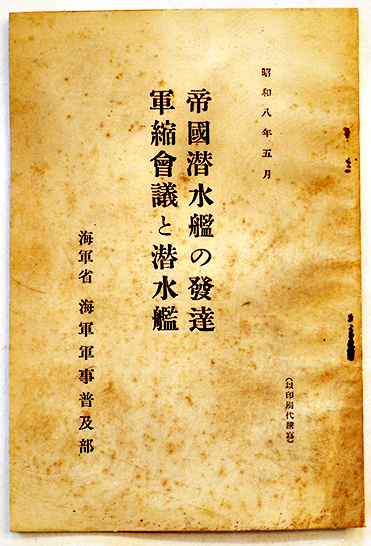 昭和八年五月
帝國潜水艦の發達
軍縮會議と潜水艦
海軍省 海軍軍事普及部
(以印刷代謄寫)